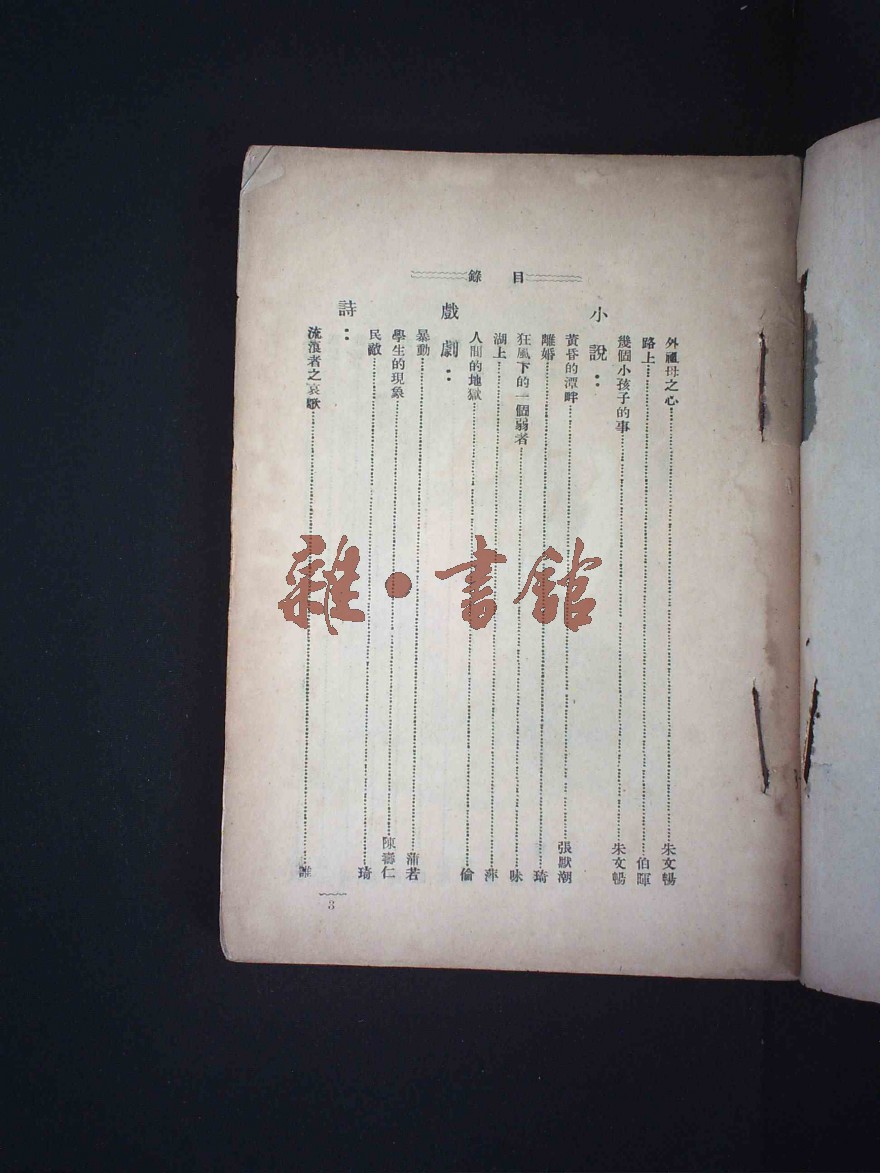 目錄
外祖母之心 朱文暢
路上 伯暉
幾個小孩子的事 朱文暢
小說：
黃昏的潭畔 張默潮
離婚 琦
狂風下的一個弱者 味
湖上 萍
人間的地獄 倫
戲劇：
暴動 蒲若
學生的現象 陳壽仁
民敵 琦
詩：
流浪者之哀歌 誰
3
雜·書館